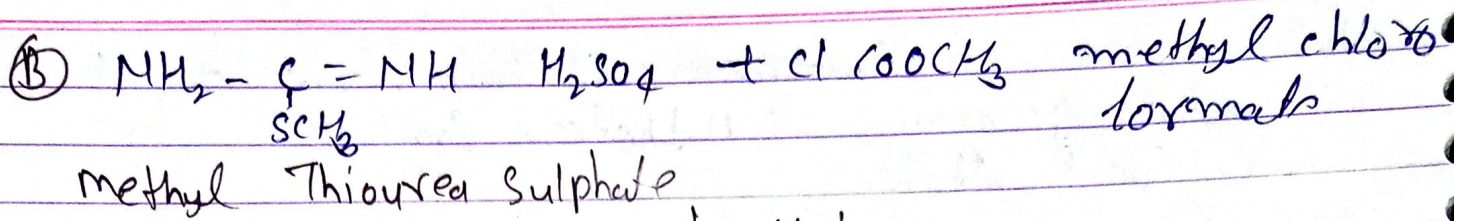 Ⓑ NH₂ - C = NH H₂SO₄ + Cl COOCH₃ methyl chloro
SCH₃ formate
methyl Thiourea Sulphate